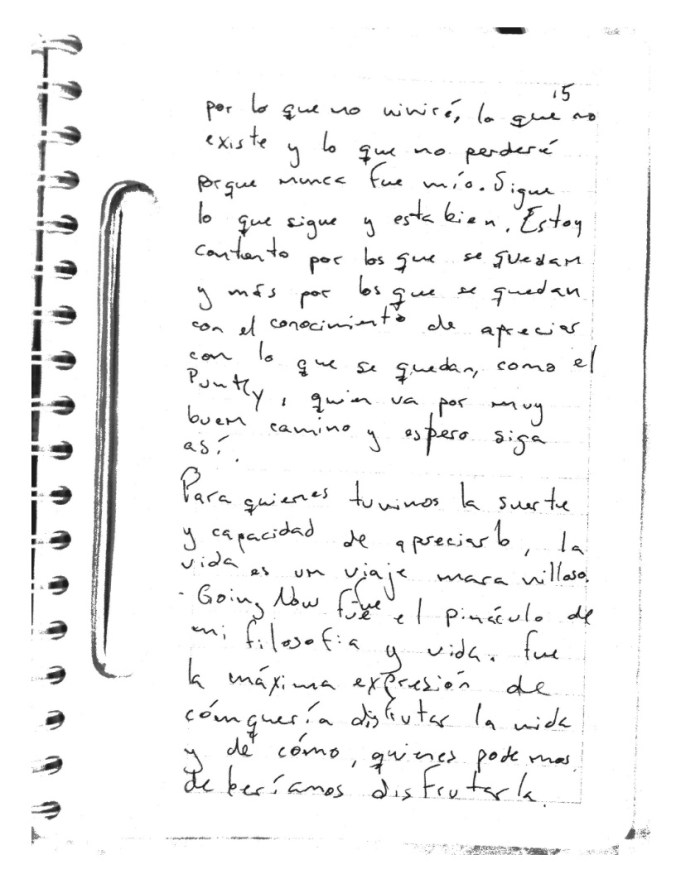 15
por lo que no viviré, lo que no
existe y lo que no perderé
porque nunca fue mío. Sigue
lo que sigue y esta bien. Estoy
contento por los que se quedan
y más por los que se quedan
con el conocimiento de apreciar
con lo que se quedan, como el
, quien va por muy
buen camino y espero siga
así.
Para quienes tuvimos la suerte
y capacidad de apreciarlo, la
vida es un viaje maravilloso.
Going Now fue el pináculo de
mi filosofía y vida. fue
la máxima expresión de
cómo quería disfrutar la vida
y de cómo, quienes podemos,
deberíamos disfrutarla.